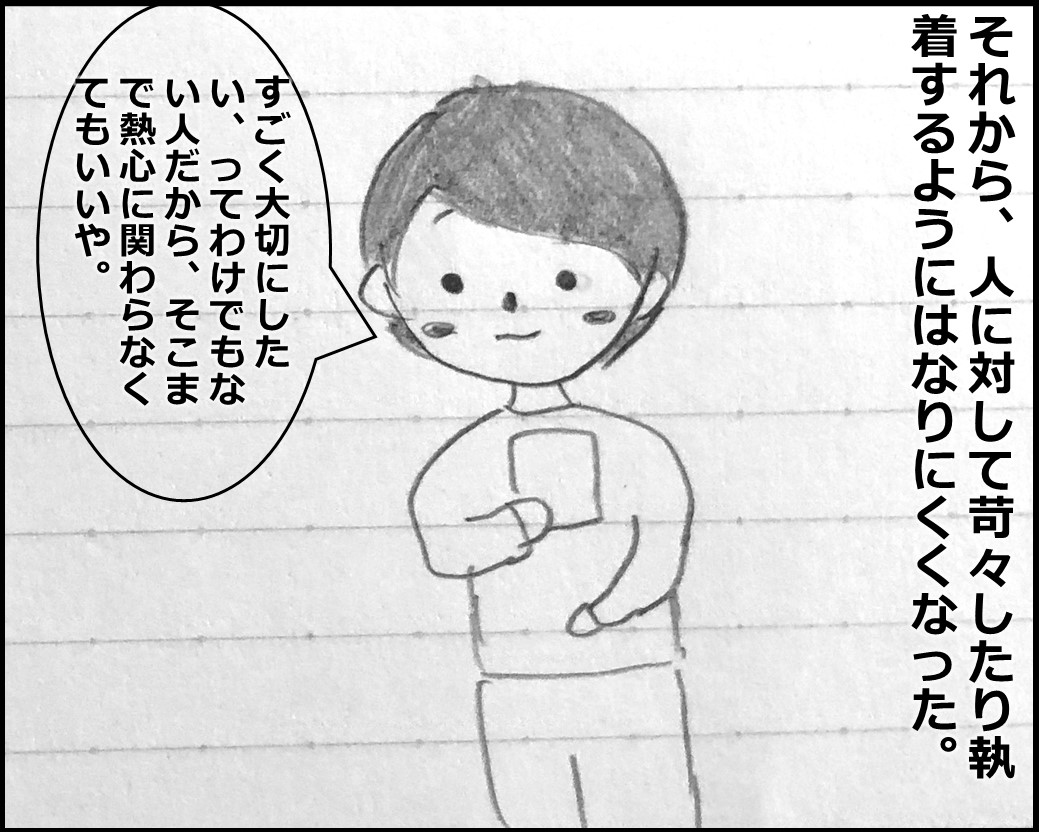 それから、人に対して苛々したり執
着するようにはなりにくくなった。
すごく大切にした
い、ってわけでもな
い人だから、そこま
で熱心に関わらなく
てもいいや。